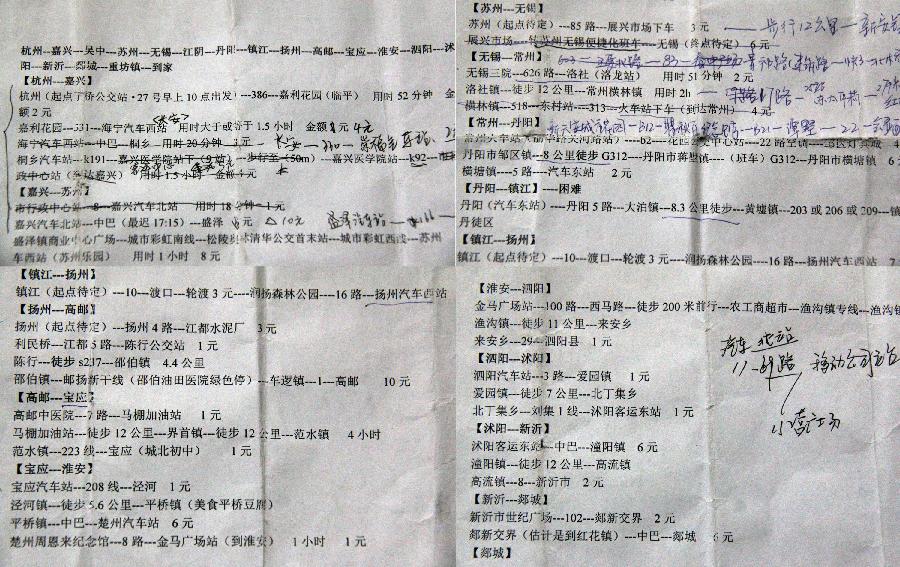 杭州---嘉兴---吴中---苏州---无锡---江阴---丹阳---镇江---扬州---高邮---宝应---淮安---泗阳---沭
阳---新沂---郯城---重坊镇---到家
【杭州---嘉兴】
杭州（起点丁桥公交站·27 号早上 10 点出发）---386---嘉利花园（临平） 用时 52 分钟 金
额 2 元
嘉利花园---531---海宁汽车西站 用时大于或等于 1.5 小时 金额 4元
海宁汽车西站---中巴---桐乡 用时 20 分钟 3 元
桐乡汽车站---k191---嘉兴医学院站下（9 站）---步行至（50m）---嘉兴医学院站---k92---市
政中心站（到达嘉兴） 用时 1.5 小时 金额 4 元
【嘉兴---苏州】
市行政中心站---8---嘉兴汽车北站 用时 18 分钟 1 元
嘉兴汽车北站---中巴（最迟 17:15）---盛泽 元 10元
盛泽镇商业中心广场---城市彩虹南线---松陵 清华公交首末站---城市彩虹西线---苏州
车西站（苏州乐园） 用时 1 小时 8 元
【苏州---无锡】
苏州（起点待定）---85 路---展兴市场下车 3 元 步行12公里
展兴市场---转苏州无锡便捷化班车---无锡（终点待定）6 元
【无锡---常州】
无锡三院---626 路---洛社（洛龙站） 用时 51 分钟 2 元
洛社镇---徒步 12 公里---常州横林镇 用时 2h
横林镇---518---东村站---313---火车站下车（到达常州）4 元
【常州---丹阳】
丹阳市邹区镇---8 公里徒步 G312---丹阳市蒋墅镇---（班车）G312---丹阳市横塘镇 6
横塘镇---5 路---汽车东站 2 元
【丹阳---镇江】----困难
丹阳（汽车东站）---丹阳 5 路---大泊镇---8.3 公里徒步---黄墟镇---203 或 206 或 209---镇
丹徒区
【镇江---扬州】
镇江（起点待定）---10---渡口---轮渡 3 元---润扬森林公园---16 路---扬州汽车西站 7
【镇江---扬州】
镇江（起点待定）---10---渡口---轮渡 3 元---润扬森林公园---16 路---扬州汽车西站
【扬州---高邮】
扬州（起点待定）---扬州 4 路---江都水泥厂 3 元
利民桥---江都 5 路---陈行公交站 1 元
陈行---徒步 s237---邵伯镇 4.4 公里
邵伯镇---邮扬新干线（邵伯油田医院绿色停）---车逻镇---1---高邮 10 元
【高邮---宝应】
高邮中医院---7 路---马棚加油站 1 元
马棚加油站---徒步 12 公里---界首镇---徒步 12 公里---范水镇 4 小时
范水镇---223 线---宝应（城北初中） 1 元
【宝应---淮安】
宝应汽车站---208 线---泾河 1 元
泾河镇---徒步 5.6 公里---平桥镇（美食平桥豆腐）
平桥镇---中巴---楚州汽车站 6 元
楚州周恩来纪念馆---8 路---金马广场站（到淮安） 1 小时 1 元
【淮安---泗阳】
金马广场站---100 路---西马路---徒步 200 米前行---农工商超市---渔沟镇专线---渔沟镇
渔沟镇---徒步 11 公里---来安乡
来安乡---29---泗阳县 1 元
【泗阳---沭阳】
泗阳汽车站---3 路---爱园镇 1 元
爱园镇---徒步 7 公里---北丁集乡
北丁集乡---刘集 1 线---沭阳客运东站 1 元
【沭阳---新沂】
沭阳客运东站---中巴---潼阳镇 6 元
潼阳镇---徒步 12 公里---高流镇
高流镇---8---新沂市 2 元
【新沂---郯城】
新沂市世纪广场---102---郯新交界 2 元
郯新交界（估计是到红花镇）---中巴---郯城 6 元
【郯城】
汽车北站
小营广场